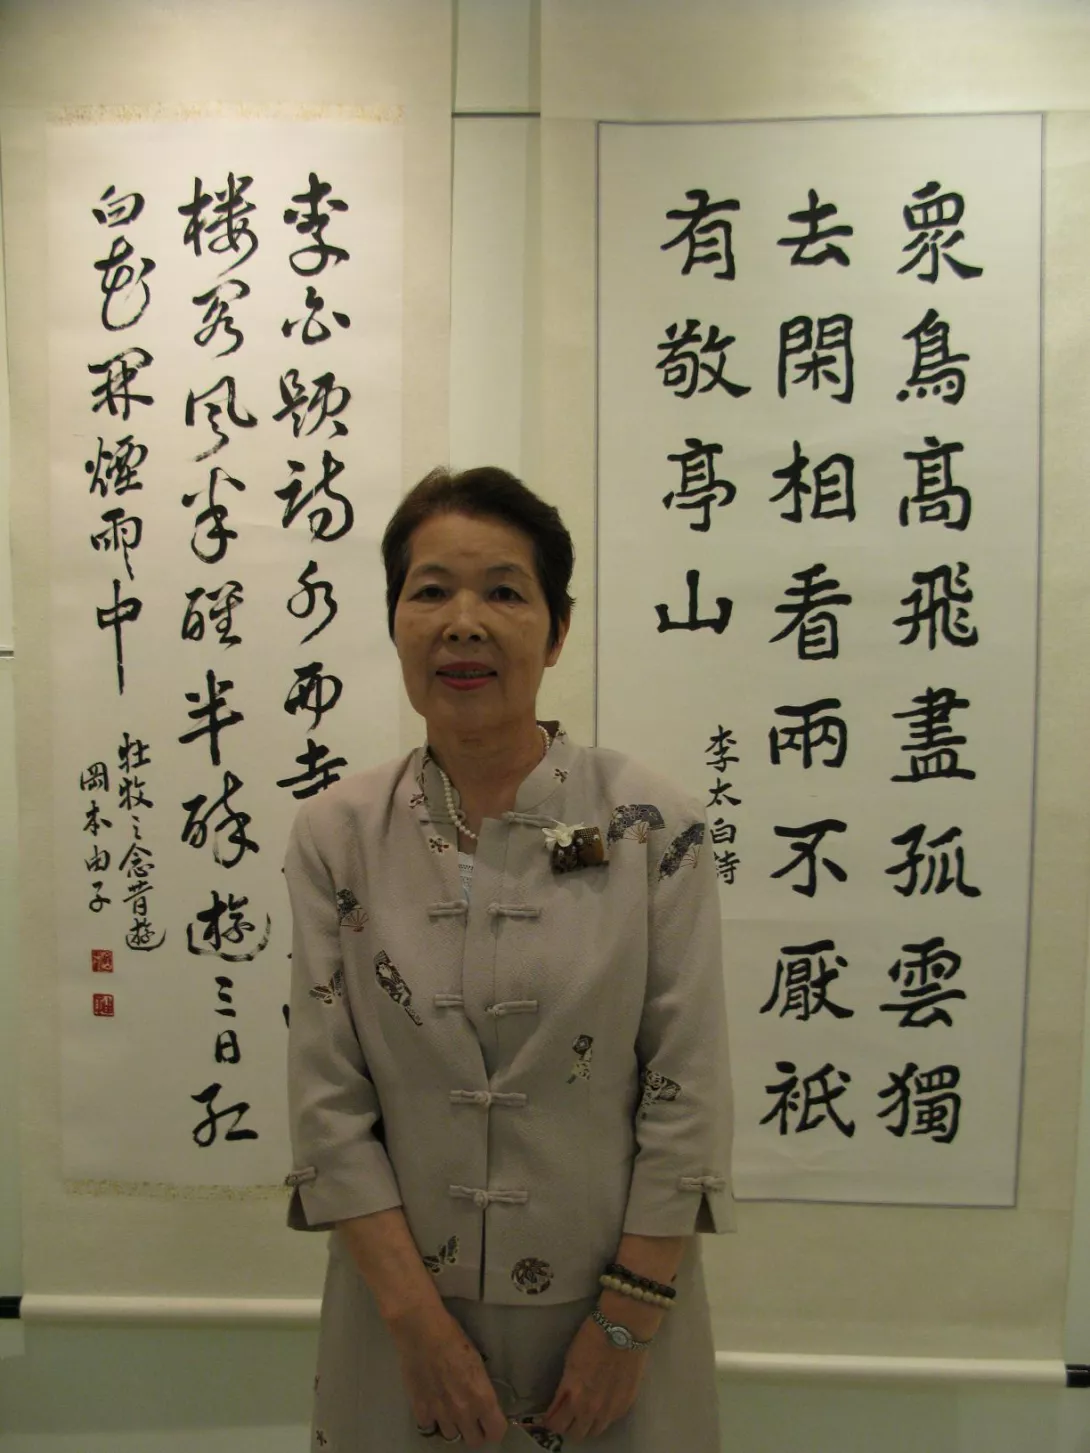 眾鳥髙飛盡孤雲獨
去閑相看兩不厭祇
有敬亭山
李太白詩
李白題詩水西寺
楼閣風半醒半酔遊三日紅
白花開煙雨中
杜牧之念昔遊
岡本由子